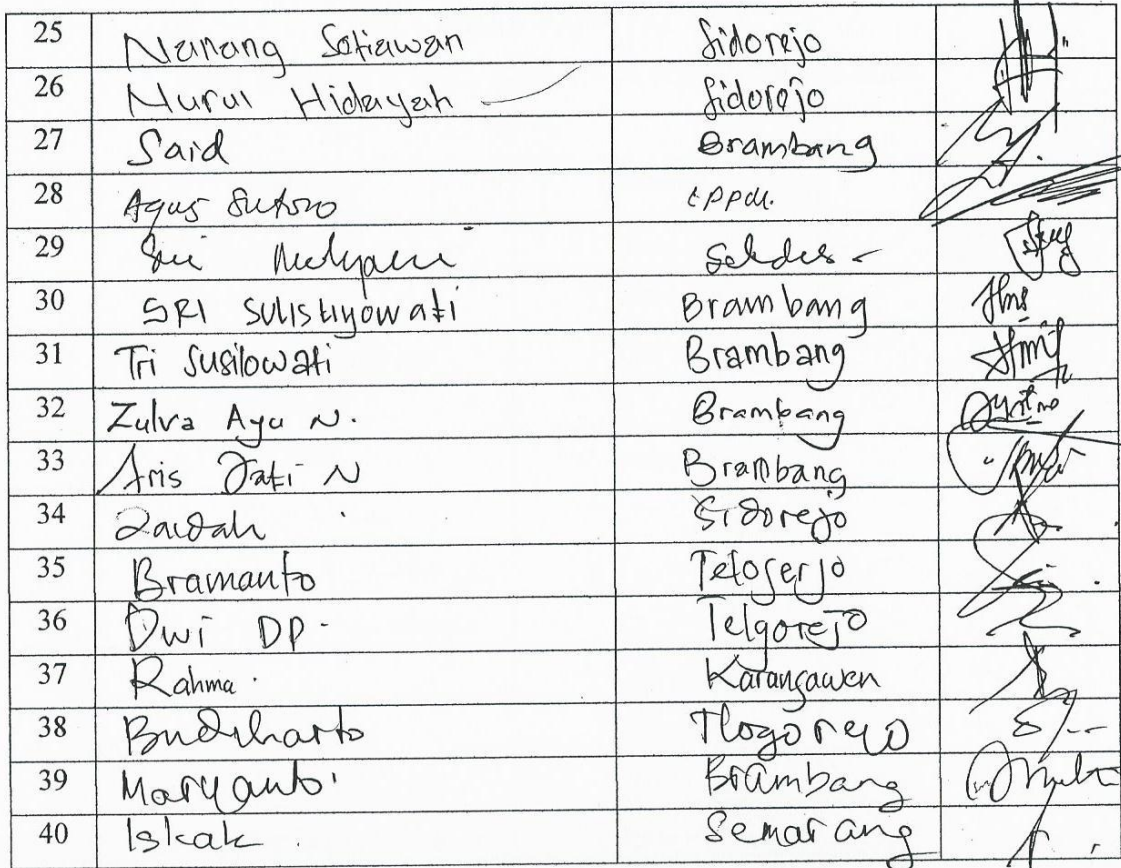 25 Nanang Setiawan Sidorejo
26 Nurul Hidayah Sidorejo
27 Said Brambang
28 Agus Sutoro
29 Sri Mulyani Sekdes -
30 SRI Sulistiyowati Brambang
31 Tri Susilowati Brambang
32 Zulva Ayu N. Brambang
33 Aris Jati N Brambang
34 Zaidah Sidorejo
35 Bramanto Telogerjo
36 Dwi DP. Telgorejo
37 Rahma. Karangawen
38 Budiharto Tlogorejo
39 Maryanto Brambang
40 Iskak. Semarang